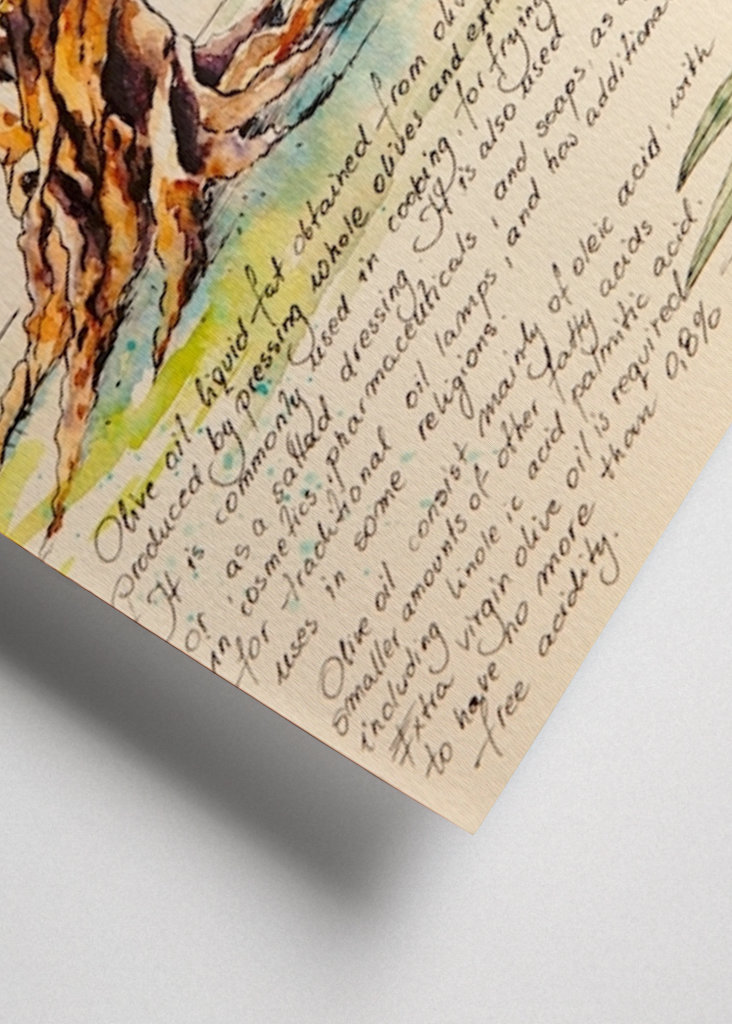 Olive oil liquid fat obtained from
Produced by pressing whole olives and
It is commonly used in cooking, for frying
or as a sallad dressing. It is also used
in cosmetics, pharmaceuticals, and soaps, as
for traditional oil lamps, and has additional
uses in some religions.
Olive oil consist mainly of oleic acid, with
smaller amounts of other fatty acids
including linole ic acid palmitic acid.
Extra virgin olive oil is required
to have no more than 0,8%
free acidity.